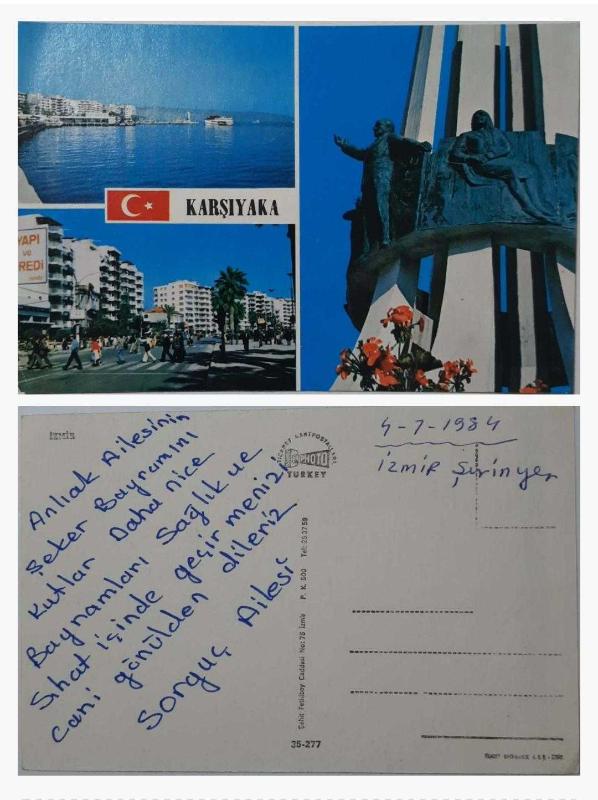 YAPI
ve
KREDİ
KARŞIYAKA
İZMİR
Anlıak Ailesinin
Şeker Bayramını
Kutlar Daha nice
Bayramları Sağlık ve
Sıhat içinde geçir menizi
cani gönülden dileriz
Sorguç Ailesi
TİCARET KARTPOSTALLARI
TURKEY
4-7-1984
İzmir Şirinyer
Şehit Fethibey Caddesi No: 76 İzmir P. K. 500 Tel: 253759
35-277